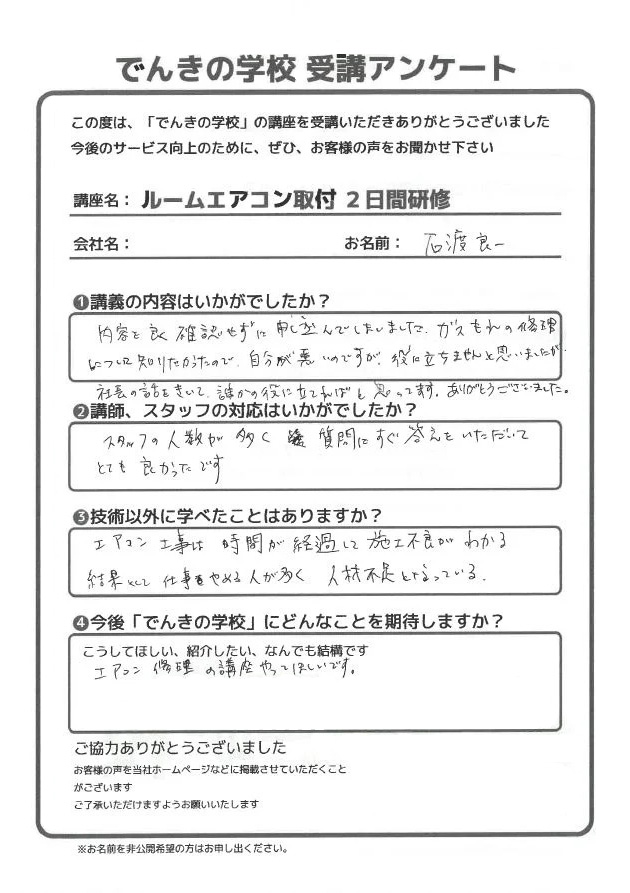 でんきの学校 受講アンケート
この度は、「でんきの学校」の講座を受講いただきありがとうございました
今後のサービス向上のために、ぜひ、お客様の声をお聞かせ下さい
講座名： ルームエアコン取付 2日間研修
会社名： お名前： 石渡良一
❶講義の内容はいかがでしたか？
内容を良く確認せずに申し込んでしまいましたで、ガスもれの修理
について知りたかったので、自分が悪いのですが、役に立ちませんと思いましたが、
社長の話をきいて、誰かの役に立てればと思ってます。ありがとうございました。
❷講師、スタッフの対応はいかがでしたか？
スタッフの人数が多く 質問にすぐ答えをいただいて
とても良かったです
❸技術以外に学べたことはありますか？
エアコン工事は時間が経過して施工不良がわかる
結果として仕事をやめる人が多く 人材不足となっている。
❹今後「でんきの学校」にどんなことを期待しますか？
こうしてほしい、紹介したい、なんでも結構です
エアコン修理の講座やってほしいです。
ご協力ありがとうございました
お客様の声を当社ホームページなどに掲載させていただくこと
がございます
ご了承いただけますようお願いいたします
※お名前を非公開希望の方はお申し出ください。